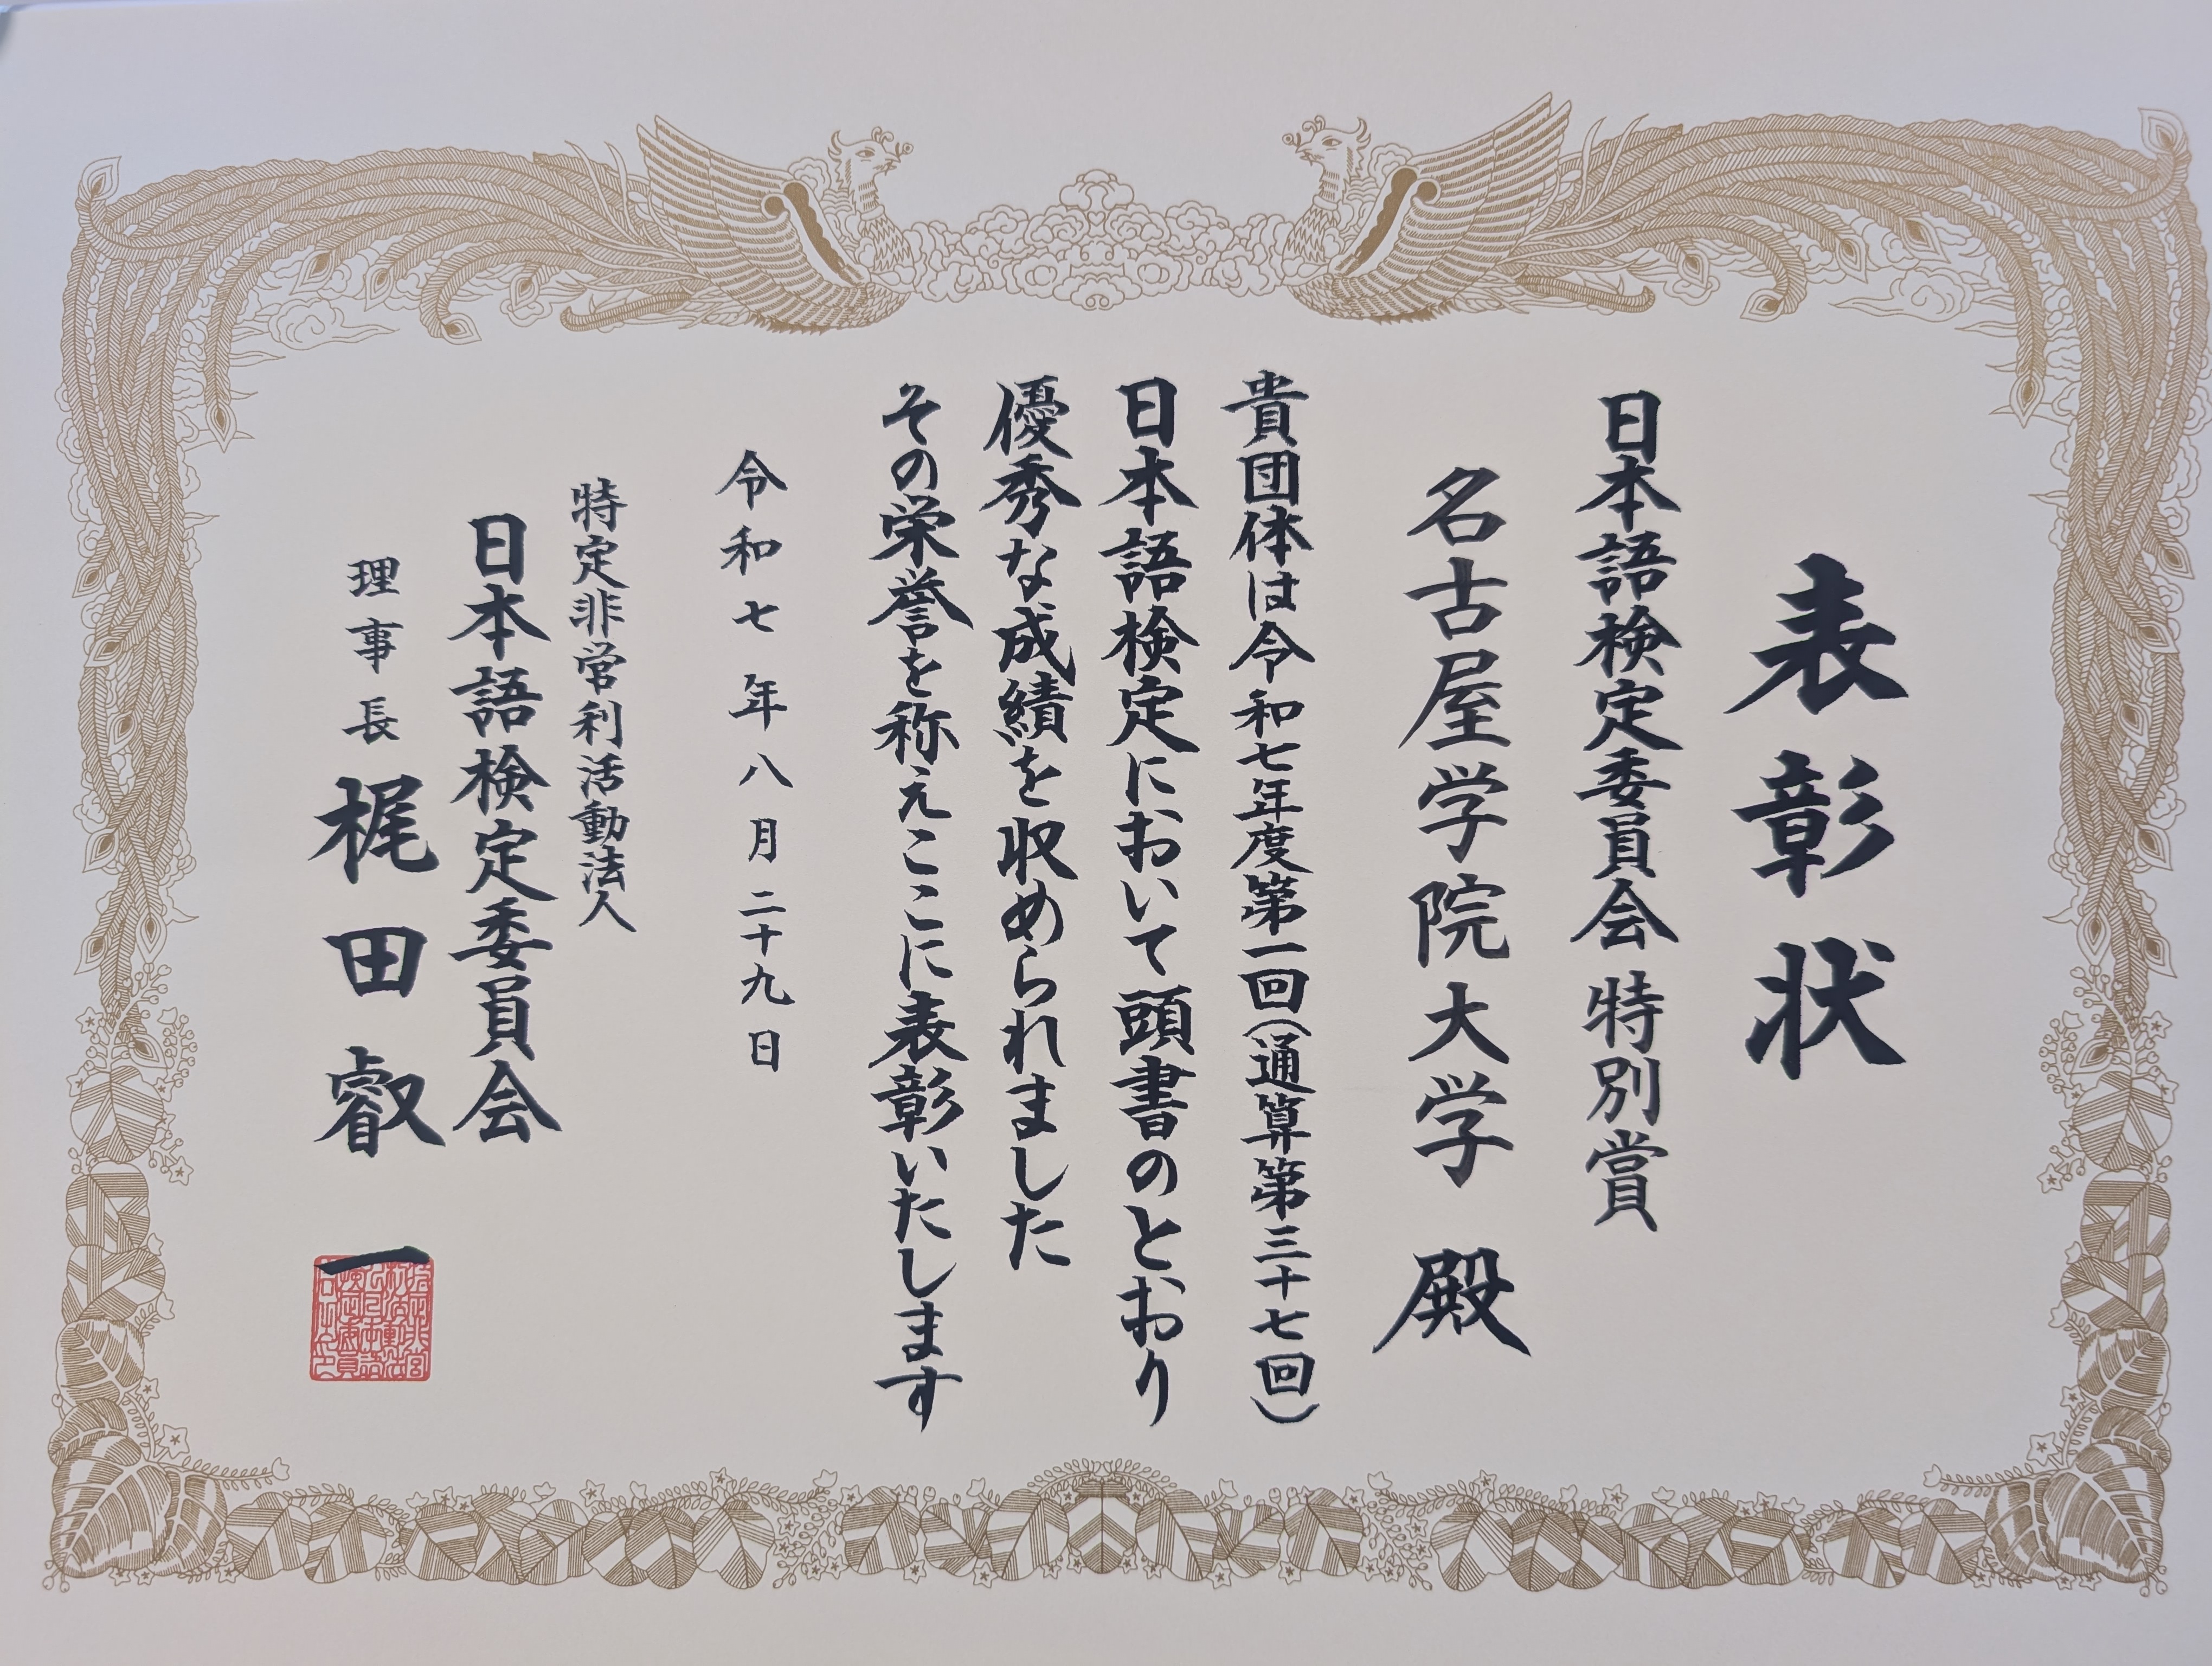 表彰状
日本語検定委員会 特別賞
名古屋学院大学 殿
貴団体は令和七年度第一回(通算第三十七回)
日本語検定において頭書のとおり
優秀な成績を収められました
その栄誉を称えここに表彰いたします
令和七年八月二十九日
特定非営利活動法人
日本語検定委員会
理事長 梶田叡一